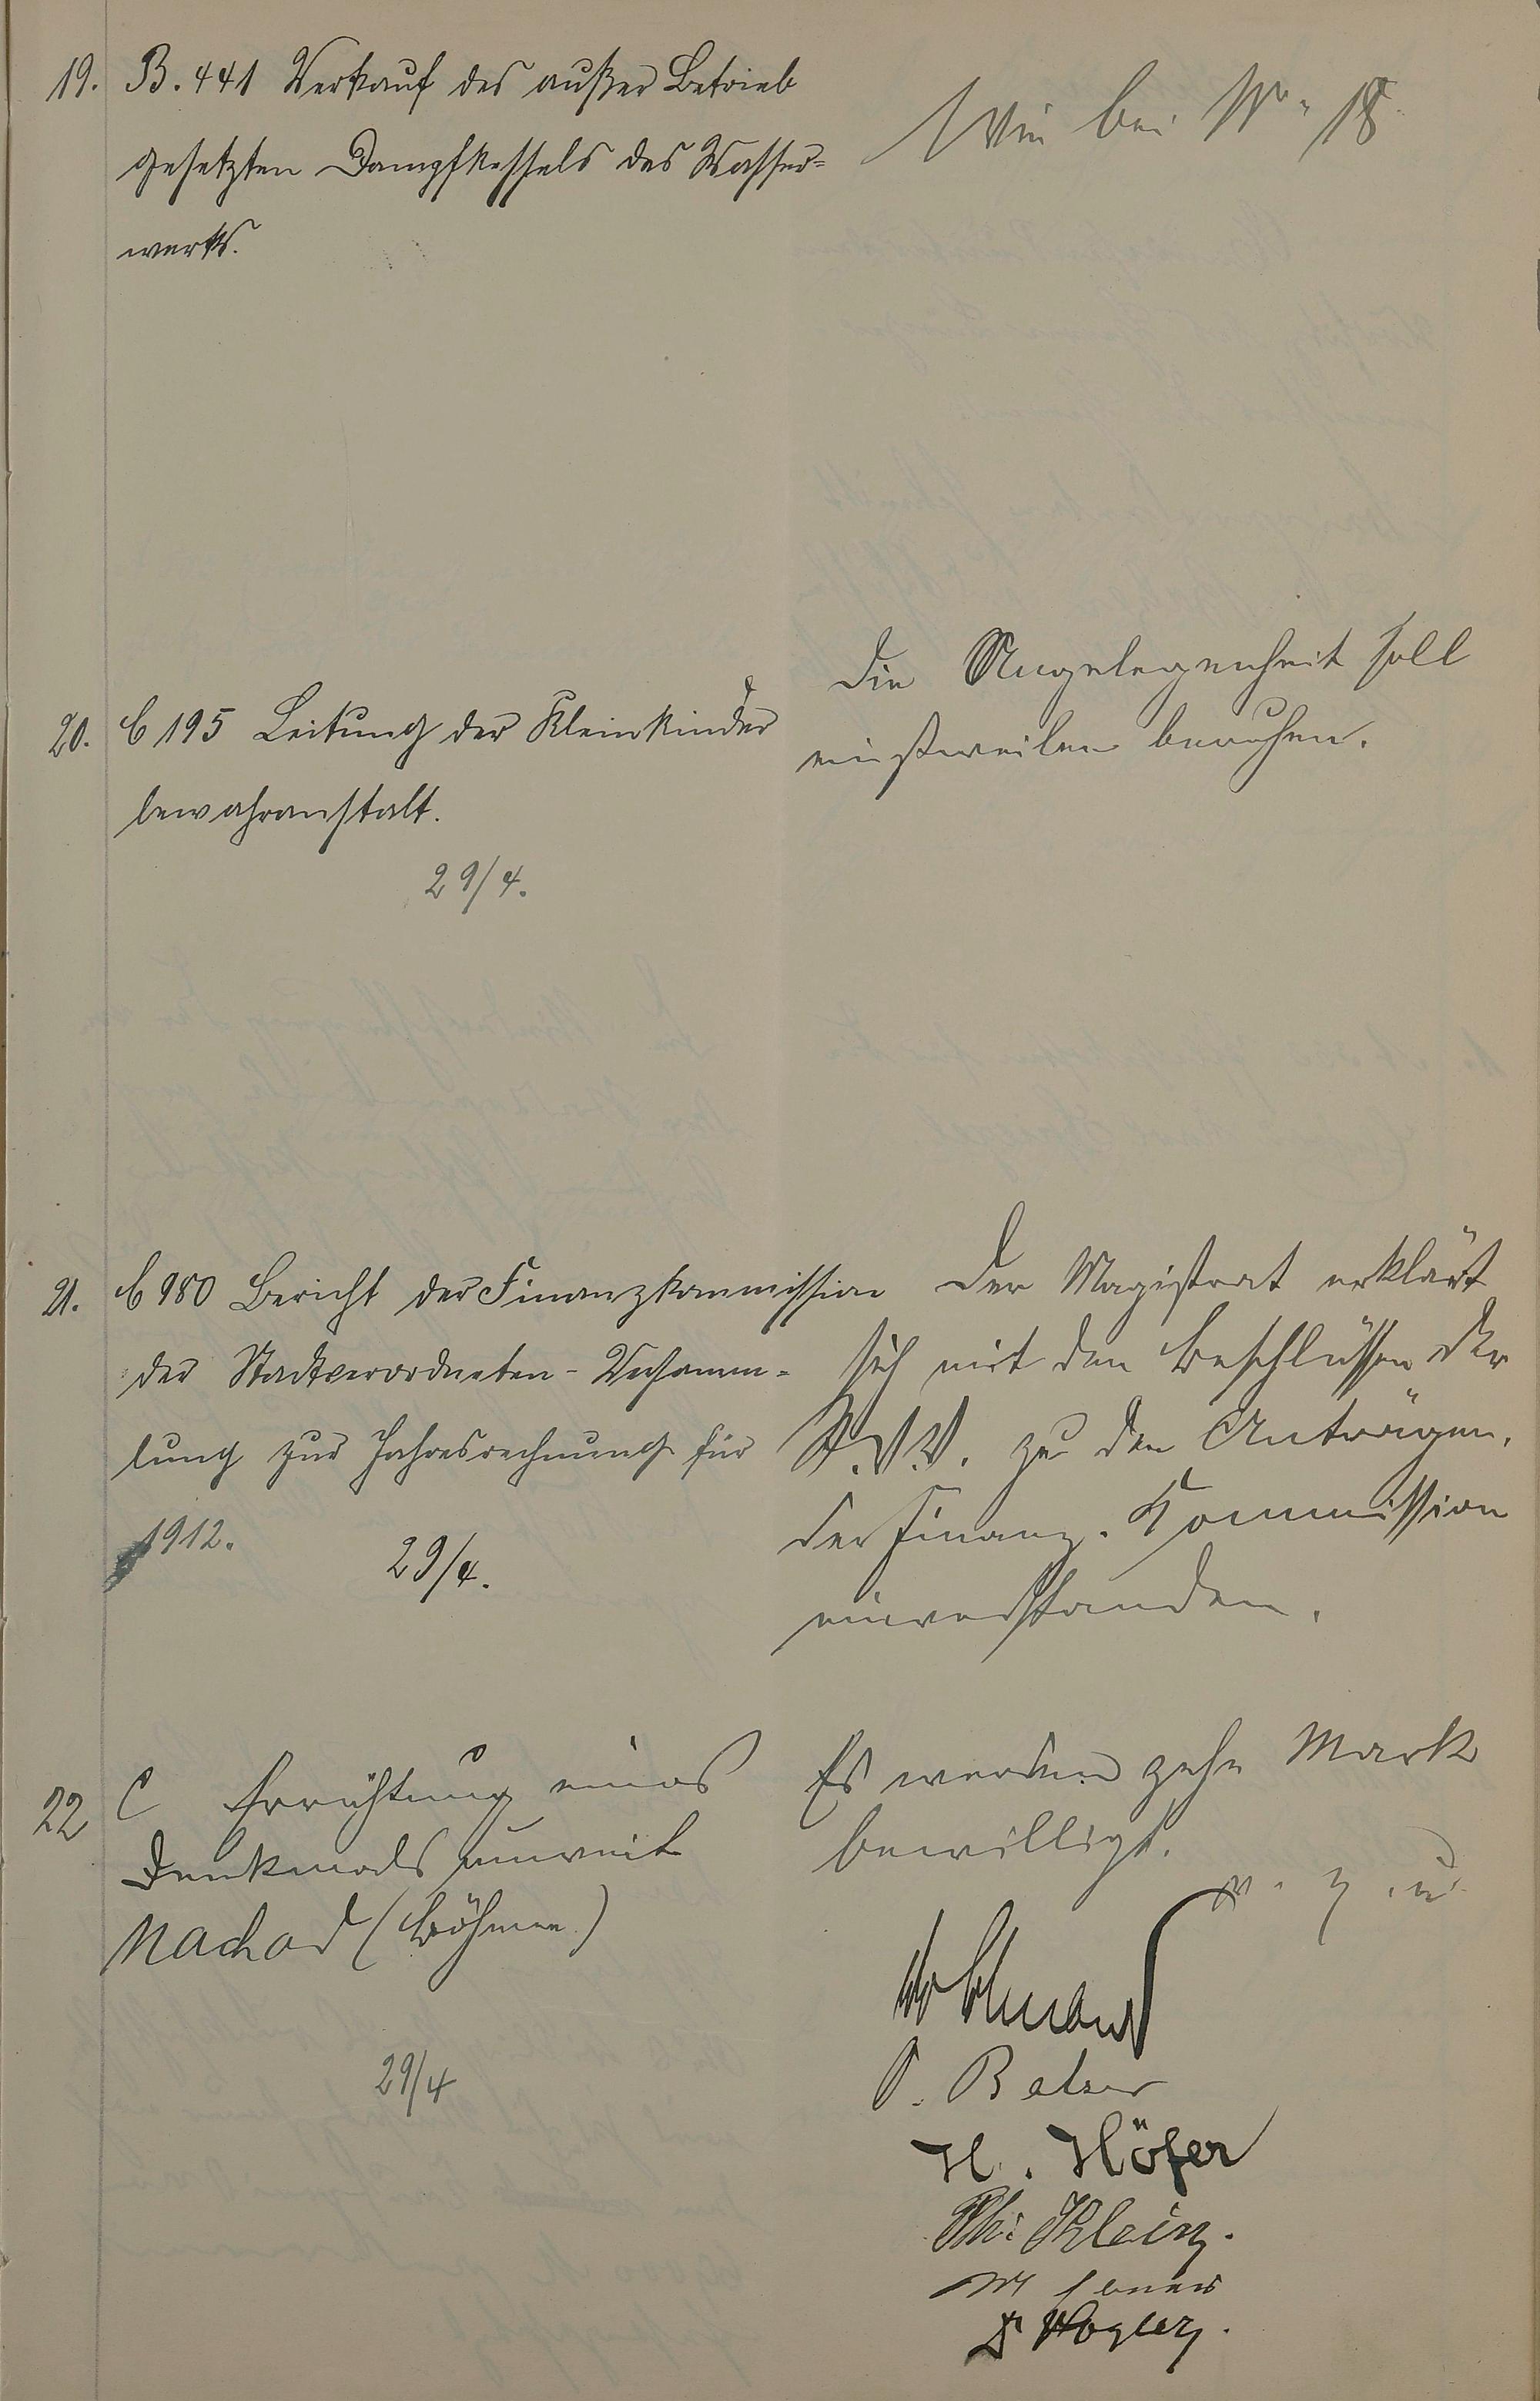 19. B. 441 Verkauf des außer Betrieb
gesetzten Dampfkessels des Wasser=
werks.
Wie bei No 18
20. C 195 Leitung der Kleinkinder
bewahranstalt.
29/4.
Die Angelegenheit soll
einstweilen beruhen.
21. C 980 Bericht der Finanzkommission
der Stadtverordneten-Versamm=
lung zur Jahresrechnung für
1912.
29/4.
Der Magistrat erklärt
sich mit den Beschlüssen der
St. V. V. zu den Anträgen
der Finanz-Kommission
einverstanden.
22 C Errichtung eines
Denkmals unweit
Nachod (Böhmen)
29/4
Es werden zehn Mark
bewilligt.
v. g. u.
H. Höfer
Ph: Klein.